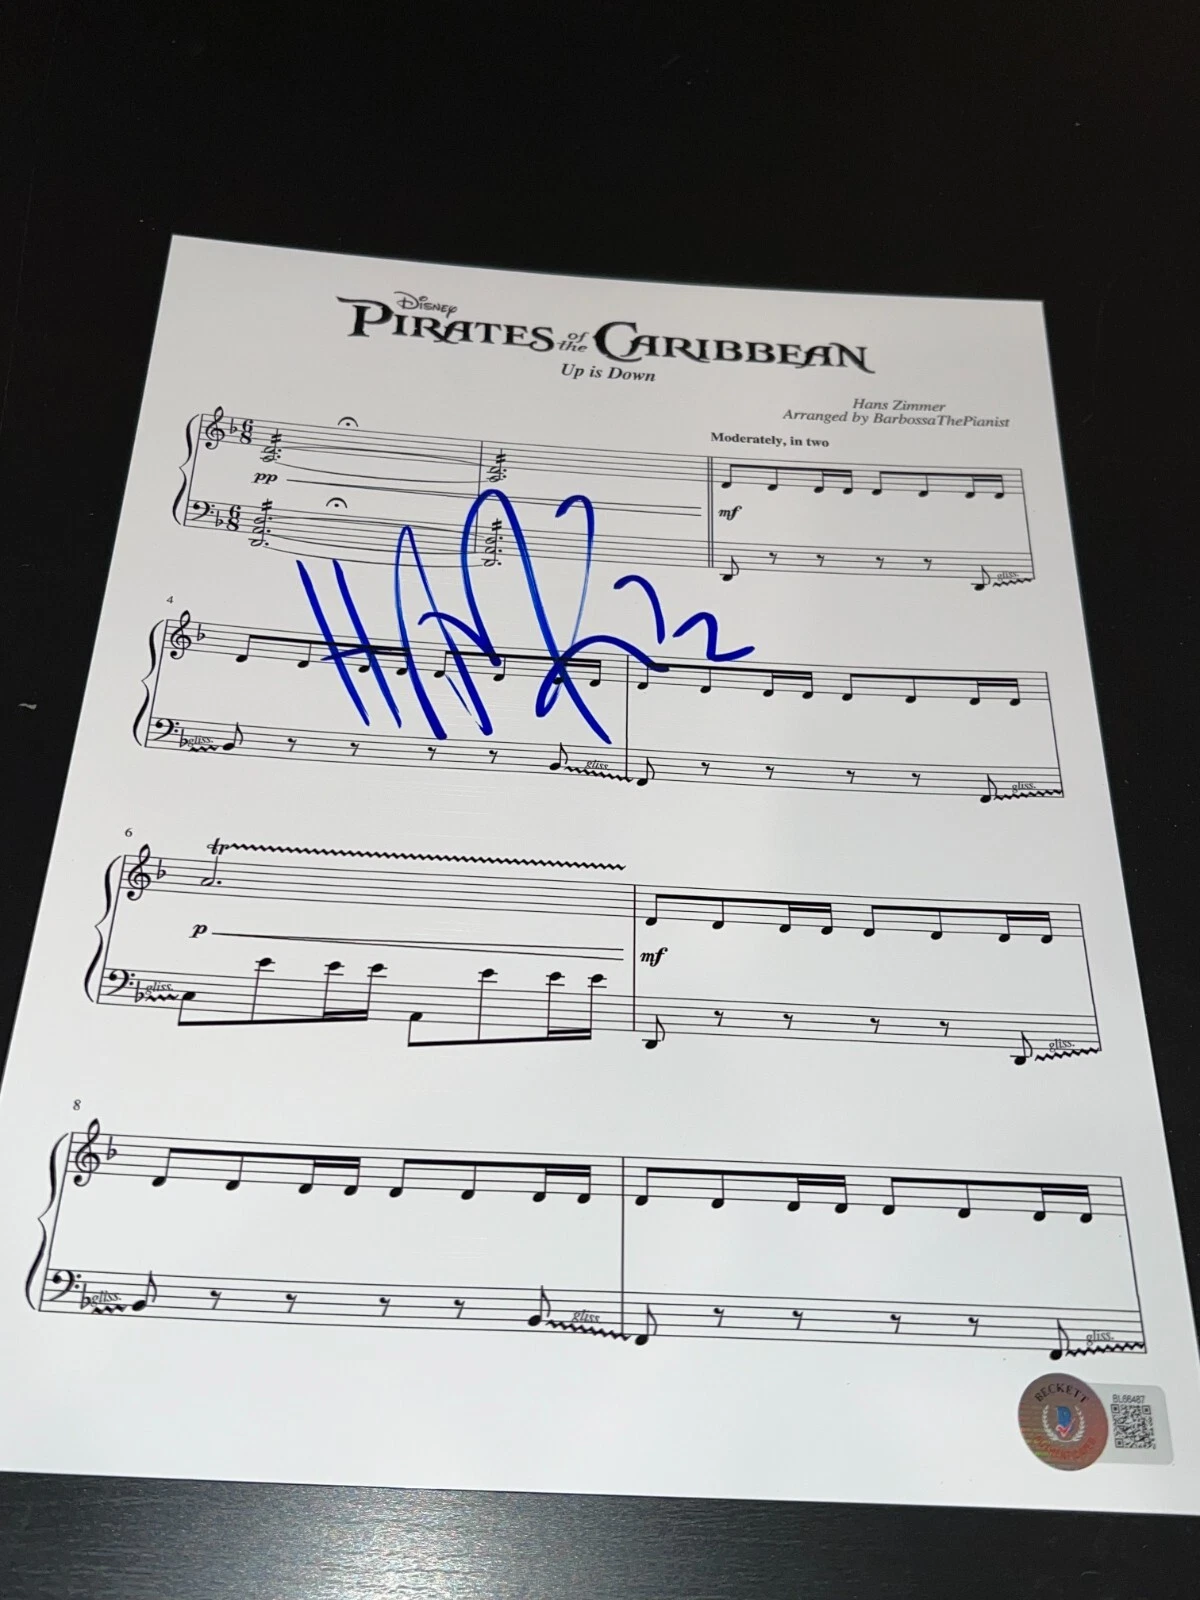 Disney
PIRATES of the CARIBBEAN
Up is Down
Hans Zimmer
Arranged by BarbossaThePianist
Moderately, in two
6
8
pp
mf
6
8
gliss.
4
gliss.
gliss.
gliss.
6
tr
p
mf
gliss.
gliss.
8
gliss.
gliss.
gliss.
BECKETT
AUTHENTICATED
BL66467